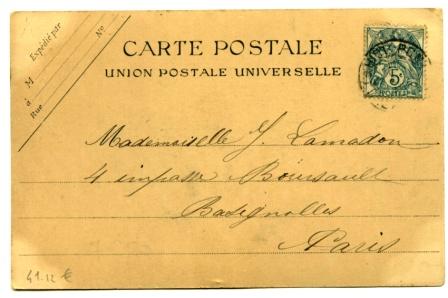 Expédié par
M
à
Rue
No
CARTE POSTALE
UNION POSTALE UNIVERSELLE
5c
POSTES
Mademoiselle Y. Lamadon
4 impasse Boursault
Batignolles
Paris
41.12 €